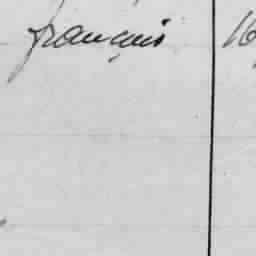 français 16